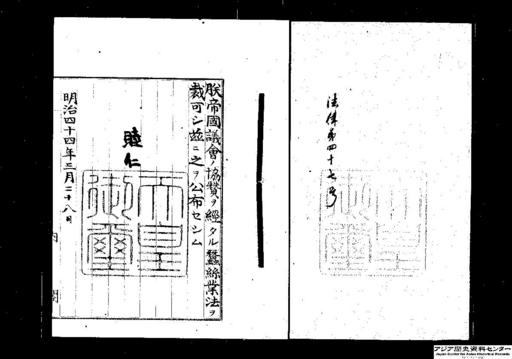 法律第四十七号
朕帝國議會ノ協賛ヲ經タル蠶絲業法ヲ
裁可シ茲ニ之ヲ公布セシム
睦仁
天皇
御璽
明治四十四年三月二十八日
内閣
アジア歴史資料センター
Japan Center for Asian Historical Records